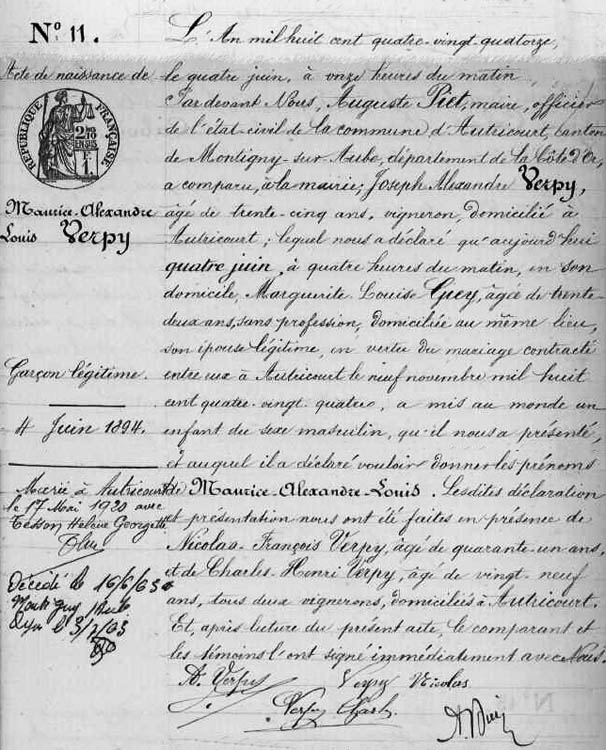 N° 11.
Acte de naissance de
RÉPUBLIQUE FRANÇAISE
Maurice-Alexandre
Louis Verpy
Garçon légitime.
4 Juin 1894.
Marié à Autricourt
le 17 Mai 1920 avec
Tesson Hélène Georgette
Décédé le 16/6/63
L'An mil huit cent quatre-vingt-quatorze,
le quatre juin, à onze heures du matin
Par devant Nous, Auguste Piet, maire, officier
de l'état-civil de la commune d'Autricourt, canton
de Montigny-sur-Aube, département de la Côte d'Or,
a comparu, à la mairie, Joseph Alexandre Verpy,
âgé de trente-cinq ans, vigneron, domicilié à
Autricourt; lequel nous a déclaré qu'aujourd'hui
quatre juin, à quatre heures du matin, en son
domicile, Marguerite Louise Guey, âgée de trente-
deux ans, sans profession, domiciliée au même lieu,
son épouse légitime, en vertu du mariage contracté
entre eux à Autricourt le neuf novembre mil huit
cent quatre-vingt-quatre, a mis au monde un
enfant du sexe masculin, qu'il nous a présenté,
et auquel il a déclaré vouloir donner les prénoms
de Maurice-Alexandre-Louis. Lesdites déclaration
et présentation nous ont été faites en présence de
Nicolas-François Verpy, âgé de quarante-un ans,
et de Charles-Henri Verpy, âgé de vingt-neuf
ans, tous deux vignerons, domiciliés à Autricourt.
Et, après lecture du présent acte, le comparant et
les témoins l'ont signé immédiatement avec Nous.
A. Verpy Verpy Nicolas
Verpy Charles